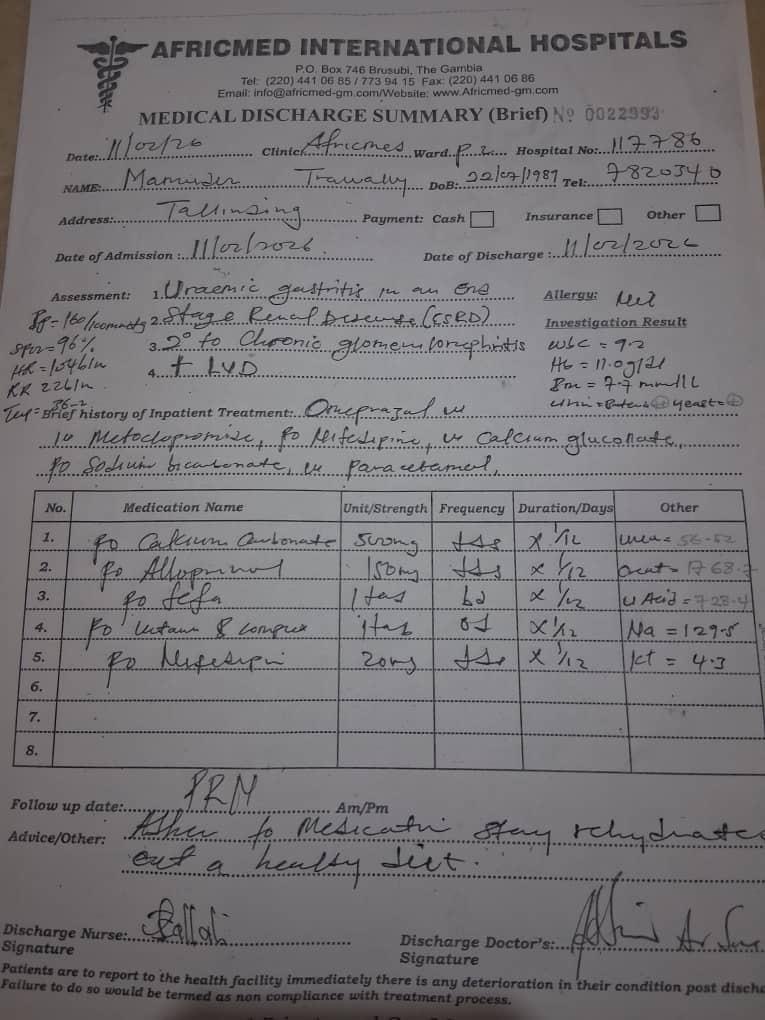 AFRICMED INTERNATIONAL HOSPITALS
P.O. Box 746 Brusubi, The Gambia
Tel: (220) 441 06 85 / 773 94 15 Fax: (220) 441 06 86
Email: info@africmed-gm.com/Website: www.Africmed-gm.com
MEDICAL DISCHARGE SUMMARY (Brief) Nº 0022993
Date: 11/02/26 Clinic: Ward: Hospital No: 117786
NAME: Trawally DoB: 22/07/1987 Tel: 7820340
Address: Tallinding Payment: Cash Insurance Other
Date of Admission: 11/02/2026 Date of Discharge: 11/02/2026
Assessment: 1. Uraemic gastritis in an End Allergy: Nil
Bp = 160/100mmHg 2. Stage Renal Disease (ESRD) Investigation Result
SPO2 = 96% 3. 2° to Chronic glomerulonephritis WBC = 9.2
HR = 104b/m 4. + LVD Hb = 11.0g/dl
RR 22b/m = 7.7 mmol/L
Temp = 36.2 yeast = +
Brief history of Inpatient Treatment: Omeprazol iv
iv Metoclopromide, po Nifedipine, iv Calcium gluconate,
po Sodium bicarbonate, iv paracetamol,
No. Medication Name Unit/Strength Frequency Duration/Days Other
1. po Calcium Carbonate 500mg tds x 1/12 urea = 56.52
2. po Allopurinol 150mg tds x 1/12 creat = 1768.7
3. po fefa 1 tab bd x 1/12 u Acid = 728.4
4. po vitamin B complex 1 tab od x 1/12 Na = 129.5
5. po Nifedipin 20mg tds x 1/12 k+ = 4.3
6.
7.
8.
Follow up date: PRN Am/Pm
Advice/Other: Adher to Medicatn stay rehydrated
eat a healthy diet.
Discharge Nurse: Discharge Doctor's:
Signature Signature
Patients are to report to the health facility immediately there is any deterioration in their condition post
Failure to do so would be termed as non compliance with treatment process.